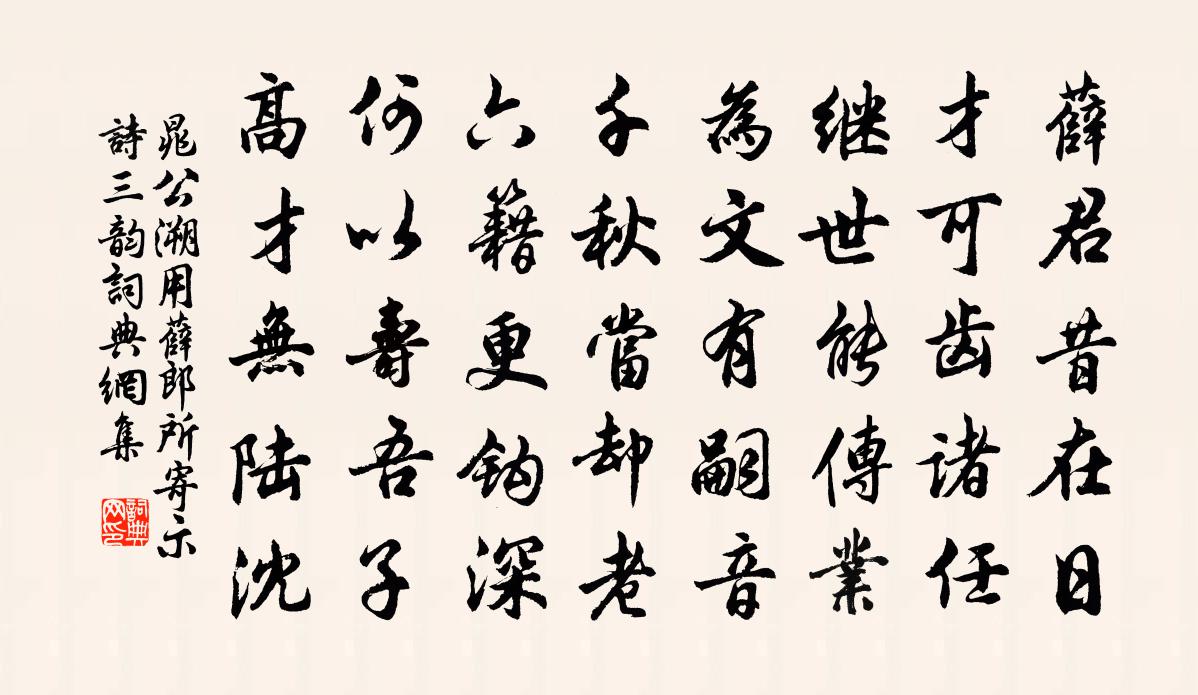 薛君昔在日
才可齿諸任
继世能傳業
為文有嗣音
千秋當却老
六籍更鈎深
何以壽吾子
高才無陆沈
晁公溯用薛郎所寄示
詩三韵詞典網集
詞典网印